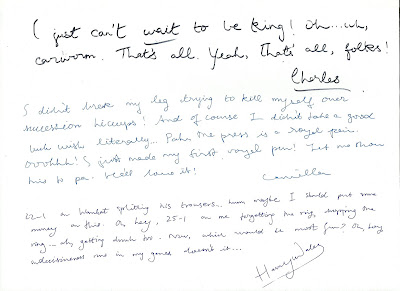 I just can't wait to be King! Uh...uh,
carworm. That's all. Yeah, That's all, folks!
Charles
I didn't break my leg trying to kill myself over
succession hiccups! And of course I didn't take a good
luck wish literally... Pah. The press is a royal pain.
Ooohhh! I just made my first royal pun! Let me show
this to pa. He'll love it!
Camilla
22-1 on splitting his trousers... hmm maybe I should put some
money on this. Oh hey, 25-1 on me forgetting the ring, dropping the
ring - oh, getting drunk too. Now, which would be most fun? Oh, hey
indecisiveness runs in my genes doesn't it...
Harry Wales